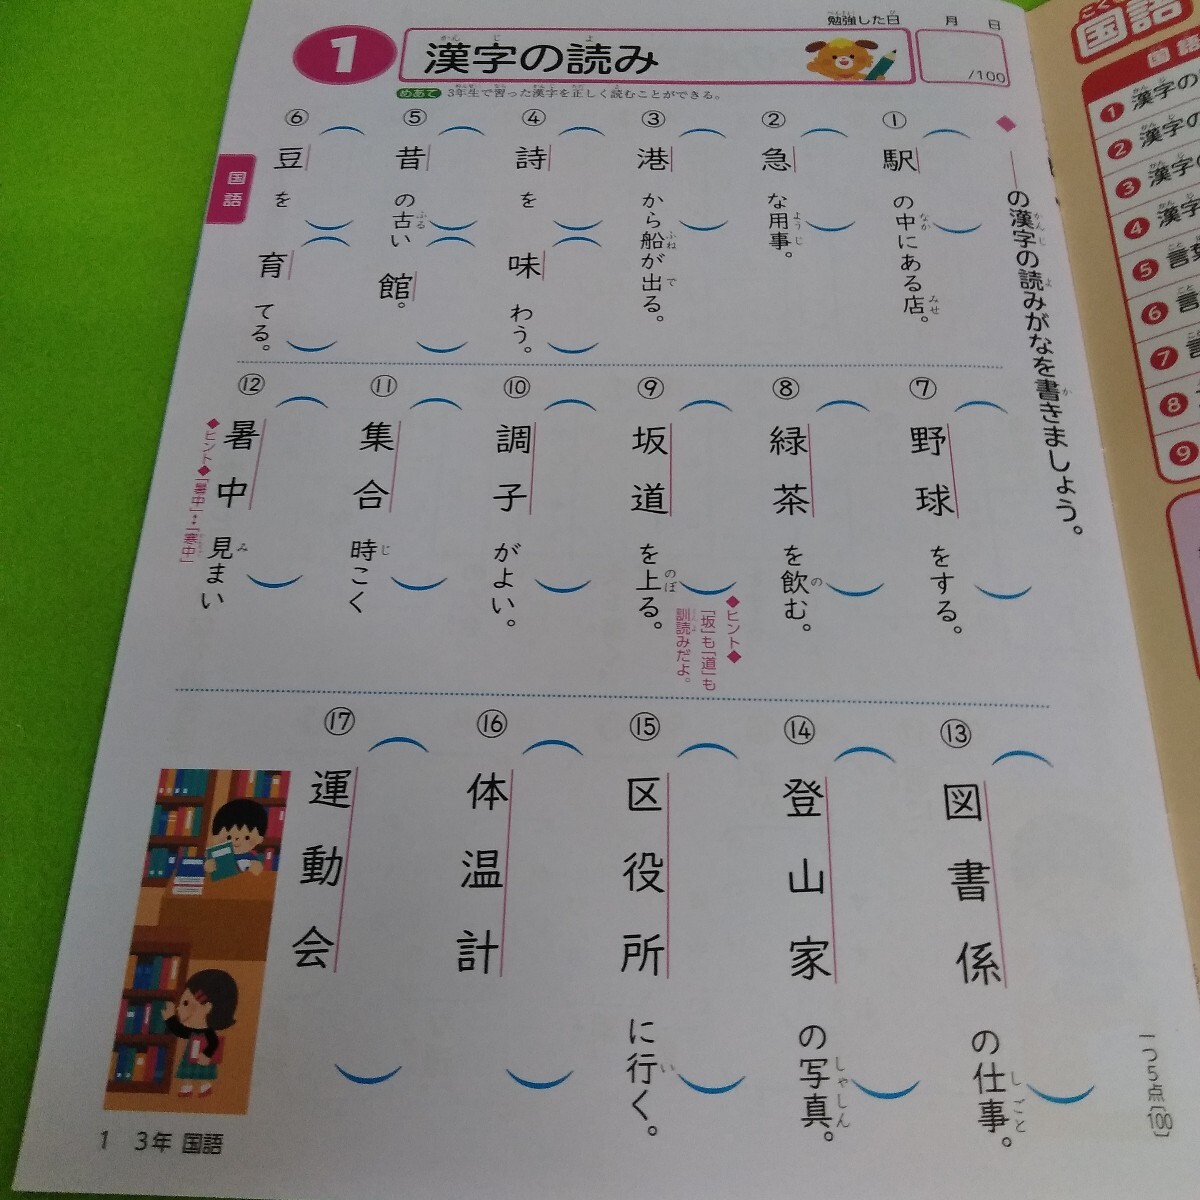 勉強した日　月　日
1 漢字の読み
/100
めあて 3年生で習った漢字を正しく読むことができる。
国語
◆――の漢字の読みがなを書きましょう。
一つ5点〔100〕
① 駅の中にある店。
② 急な用事。
③ 港から船が出る。
④ 詩を味わう。
⑤ 昔の古い館。
⑥ 豆を育てる。
⑦ 野球をする。
⑧ 緑茶を飲む。
⑨ 坂道を上る。
◆ヒント◆
「坂」も「道」も
訓読みだよ。
⑩ 調子がよい。
⑪ 集合時こく
⑫ 暑中見まい
◆ヒント◆「暑中」↔「寒中」
⑬ 図書係の仕事。
⑭ 登山家の写真。
⑮ 区役所に行く。
⑯ 体温計
⑰ 運動会
1　3年 国語
国語
国語
1 漢字の
2 漢字の
3 漢字の
4 漢字
5 言葉
6 言
7
8
9